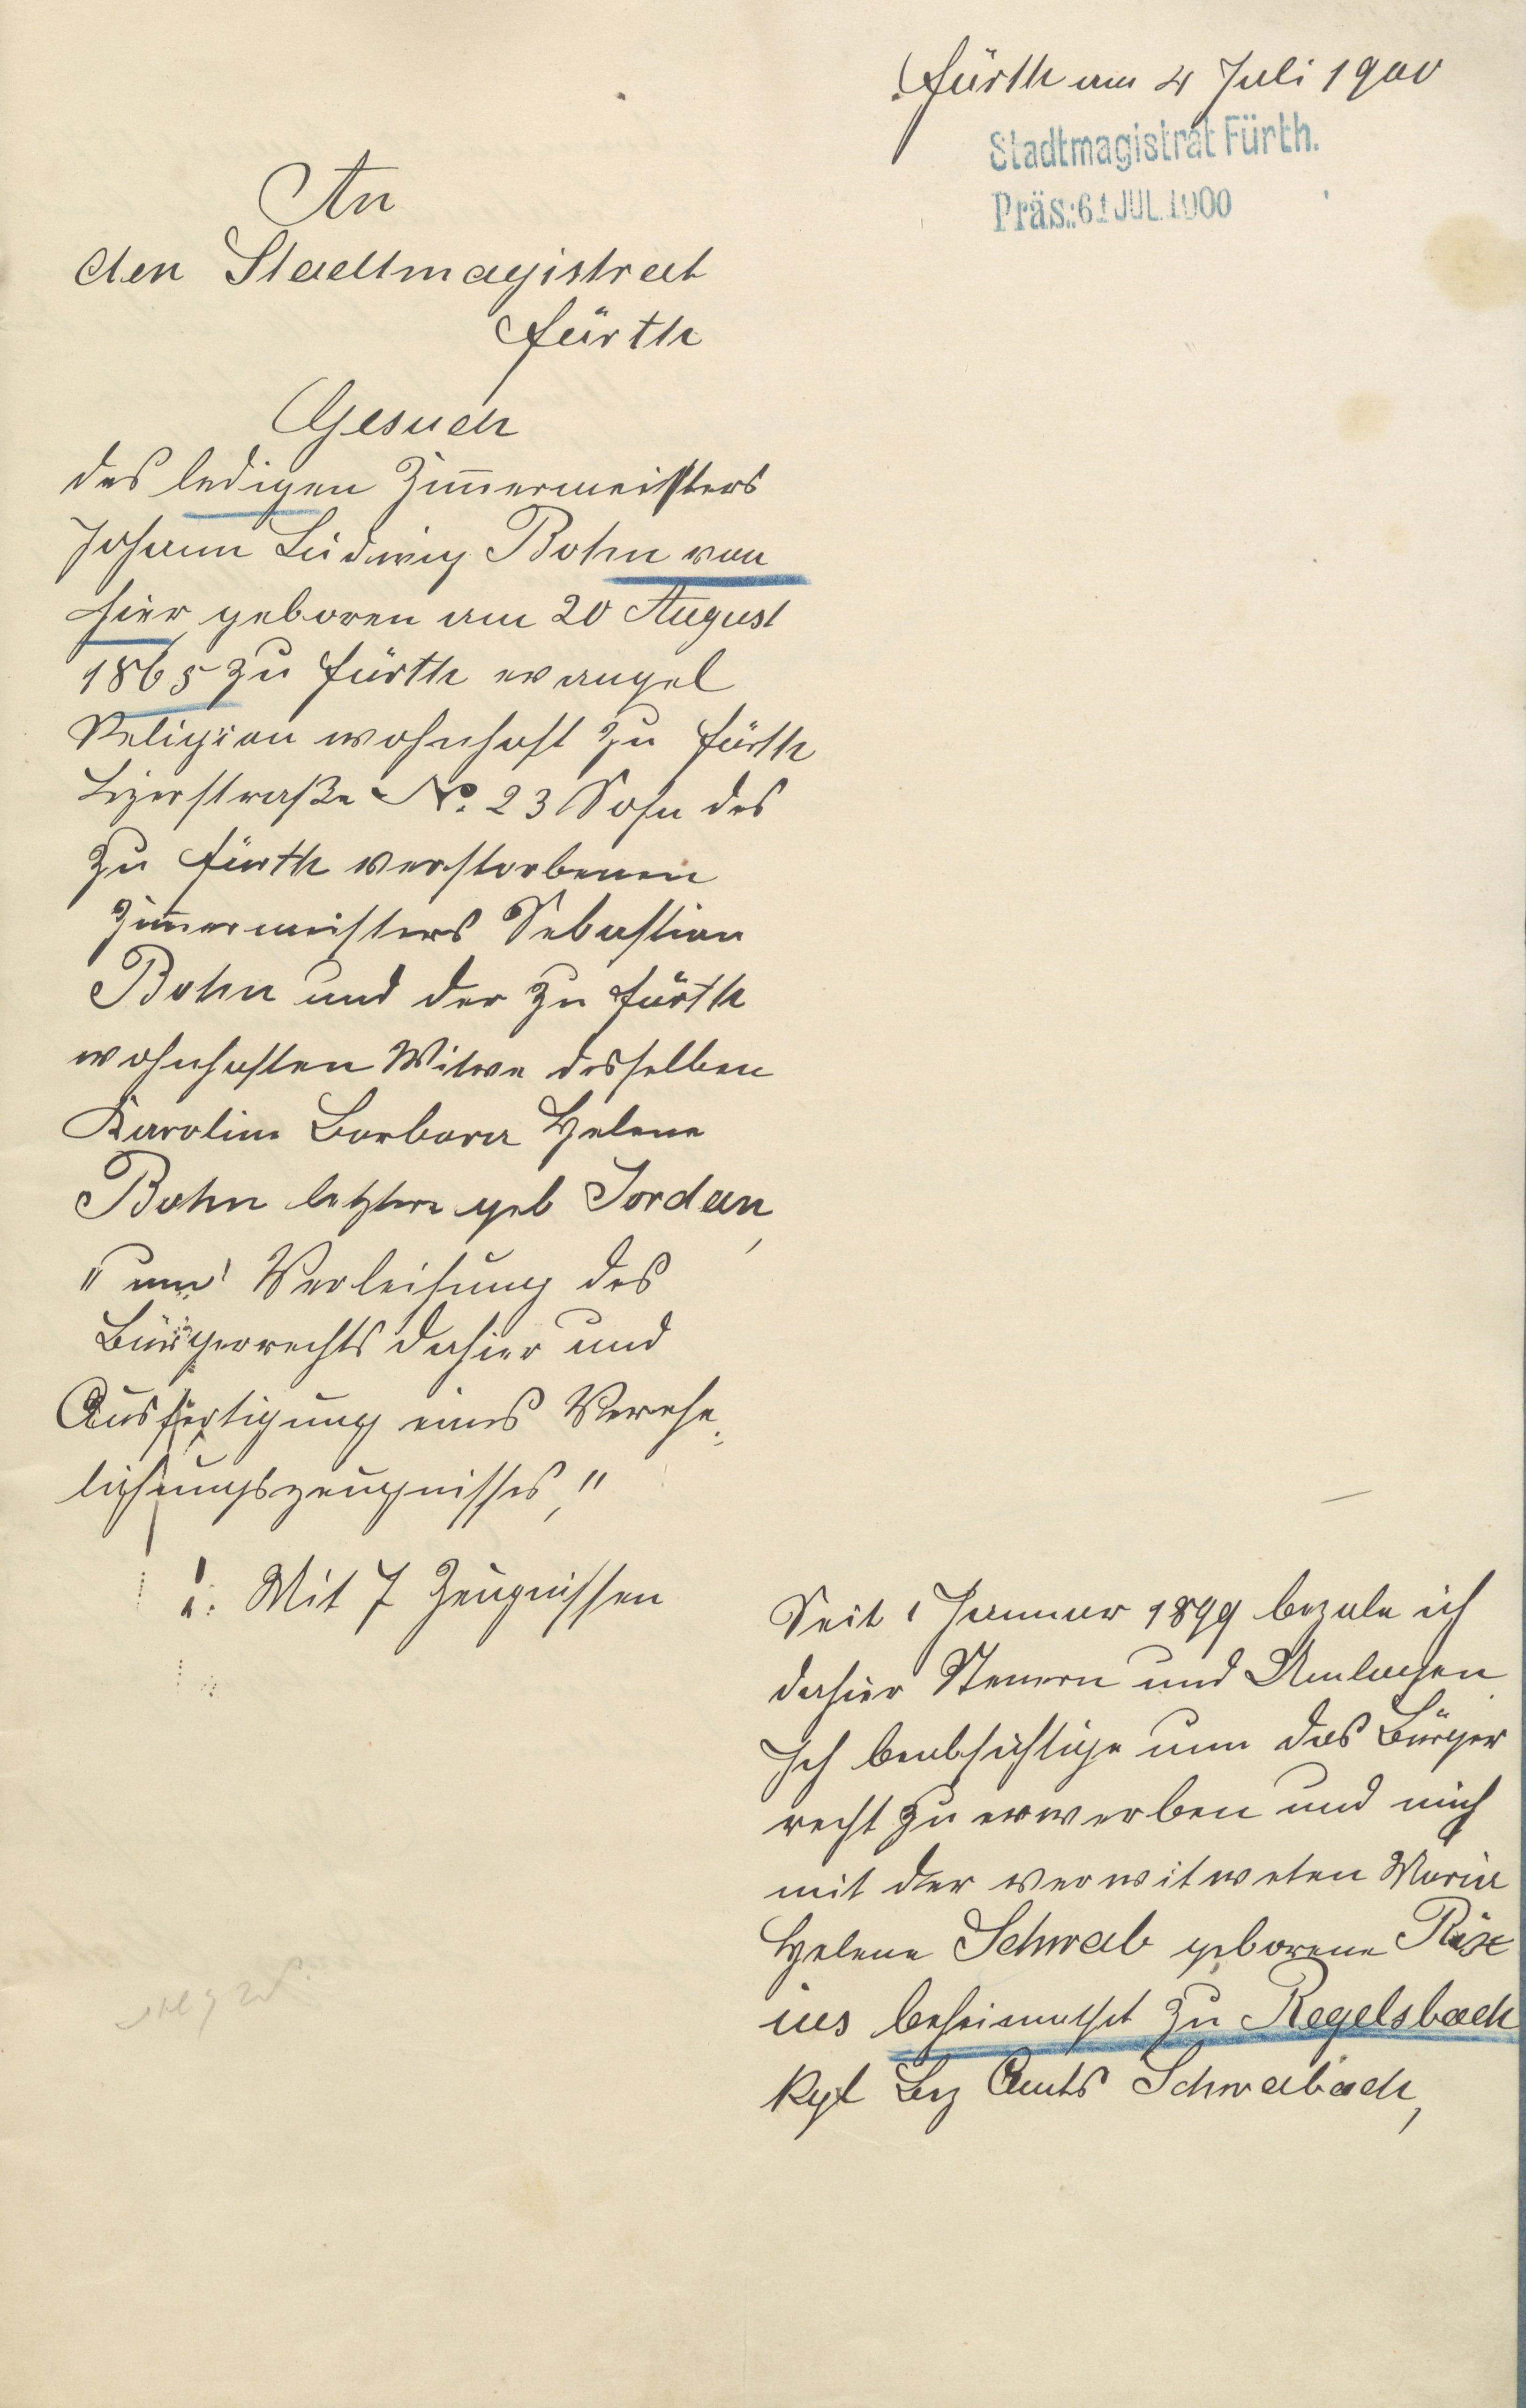 Fürth am 4 Juli 1900
Stadtmagistrat Fürth.
Präs.: JUL. 1900
An
den Stadtmagistrat
Fürth
Gesuch
des ledigen Zim̅ermeisters
Johann Ludwig Bohn von
hier geboren am 20 August
1865 zu Fürth evangel
Religion wohnhaft zu Fürth
No. 23 Sohn des
zu Fürth verstorbenen
Zim̅ermeisters Sebastian
Bohn und der zu Fürth
wohnhaften Witwe desselben
Karolina Barbara Helene
Bohn letztere geb Jordan,
"um" Verleihung des
Bürgerrechts dahier und
Ausfertigung eines Verehe-
lichungszeugnisses,"
Mit 7 Zeugnissen
Seit 1 Januar 1899 bezale ich
dahier Steuern und Umlagen
Ich beabsichtige nun das Bürger
recht zu erwerben und mich
mit der verwitweten Maria
Helene Schwab geborene Rix
ius beheimathet zu Regelsbach
kgl Bez Amts Schwabach,